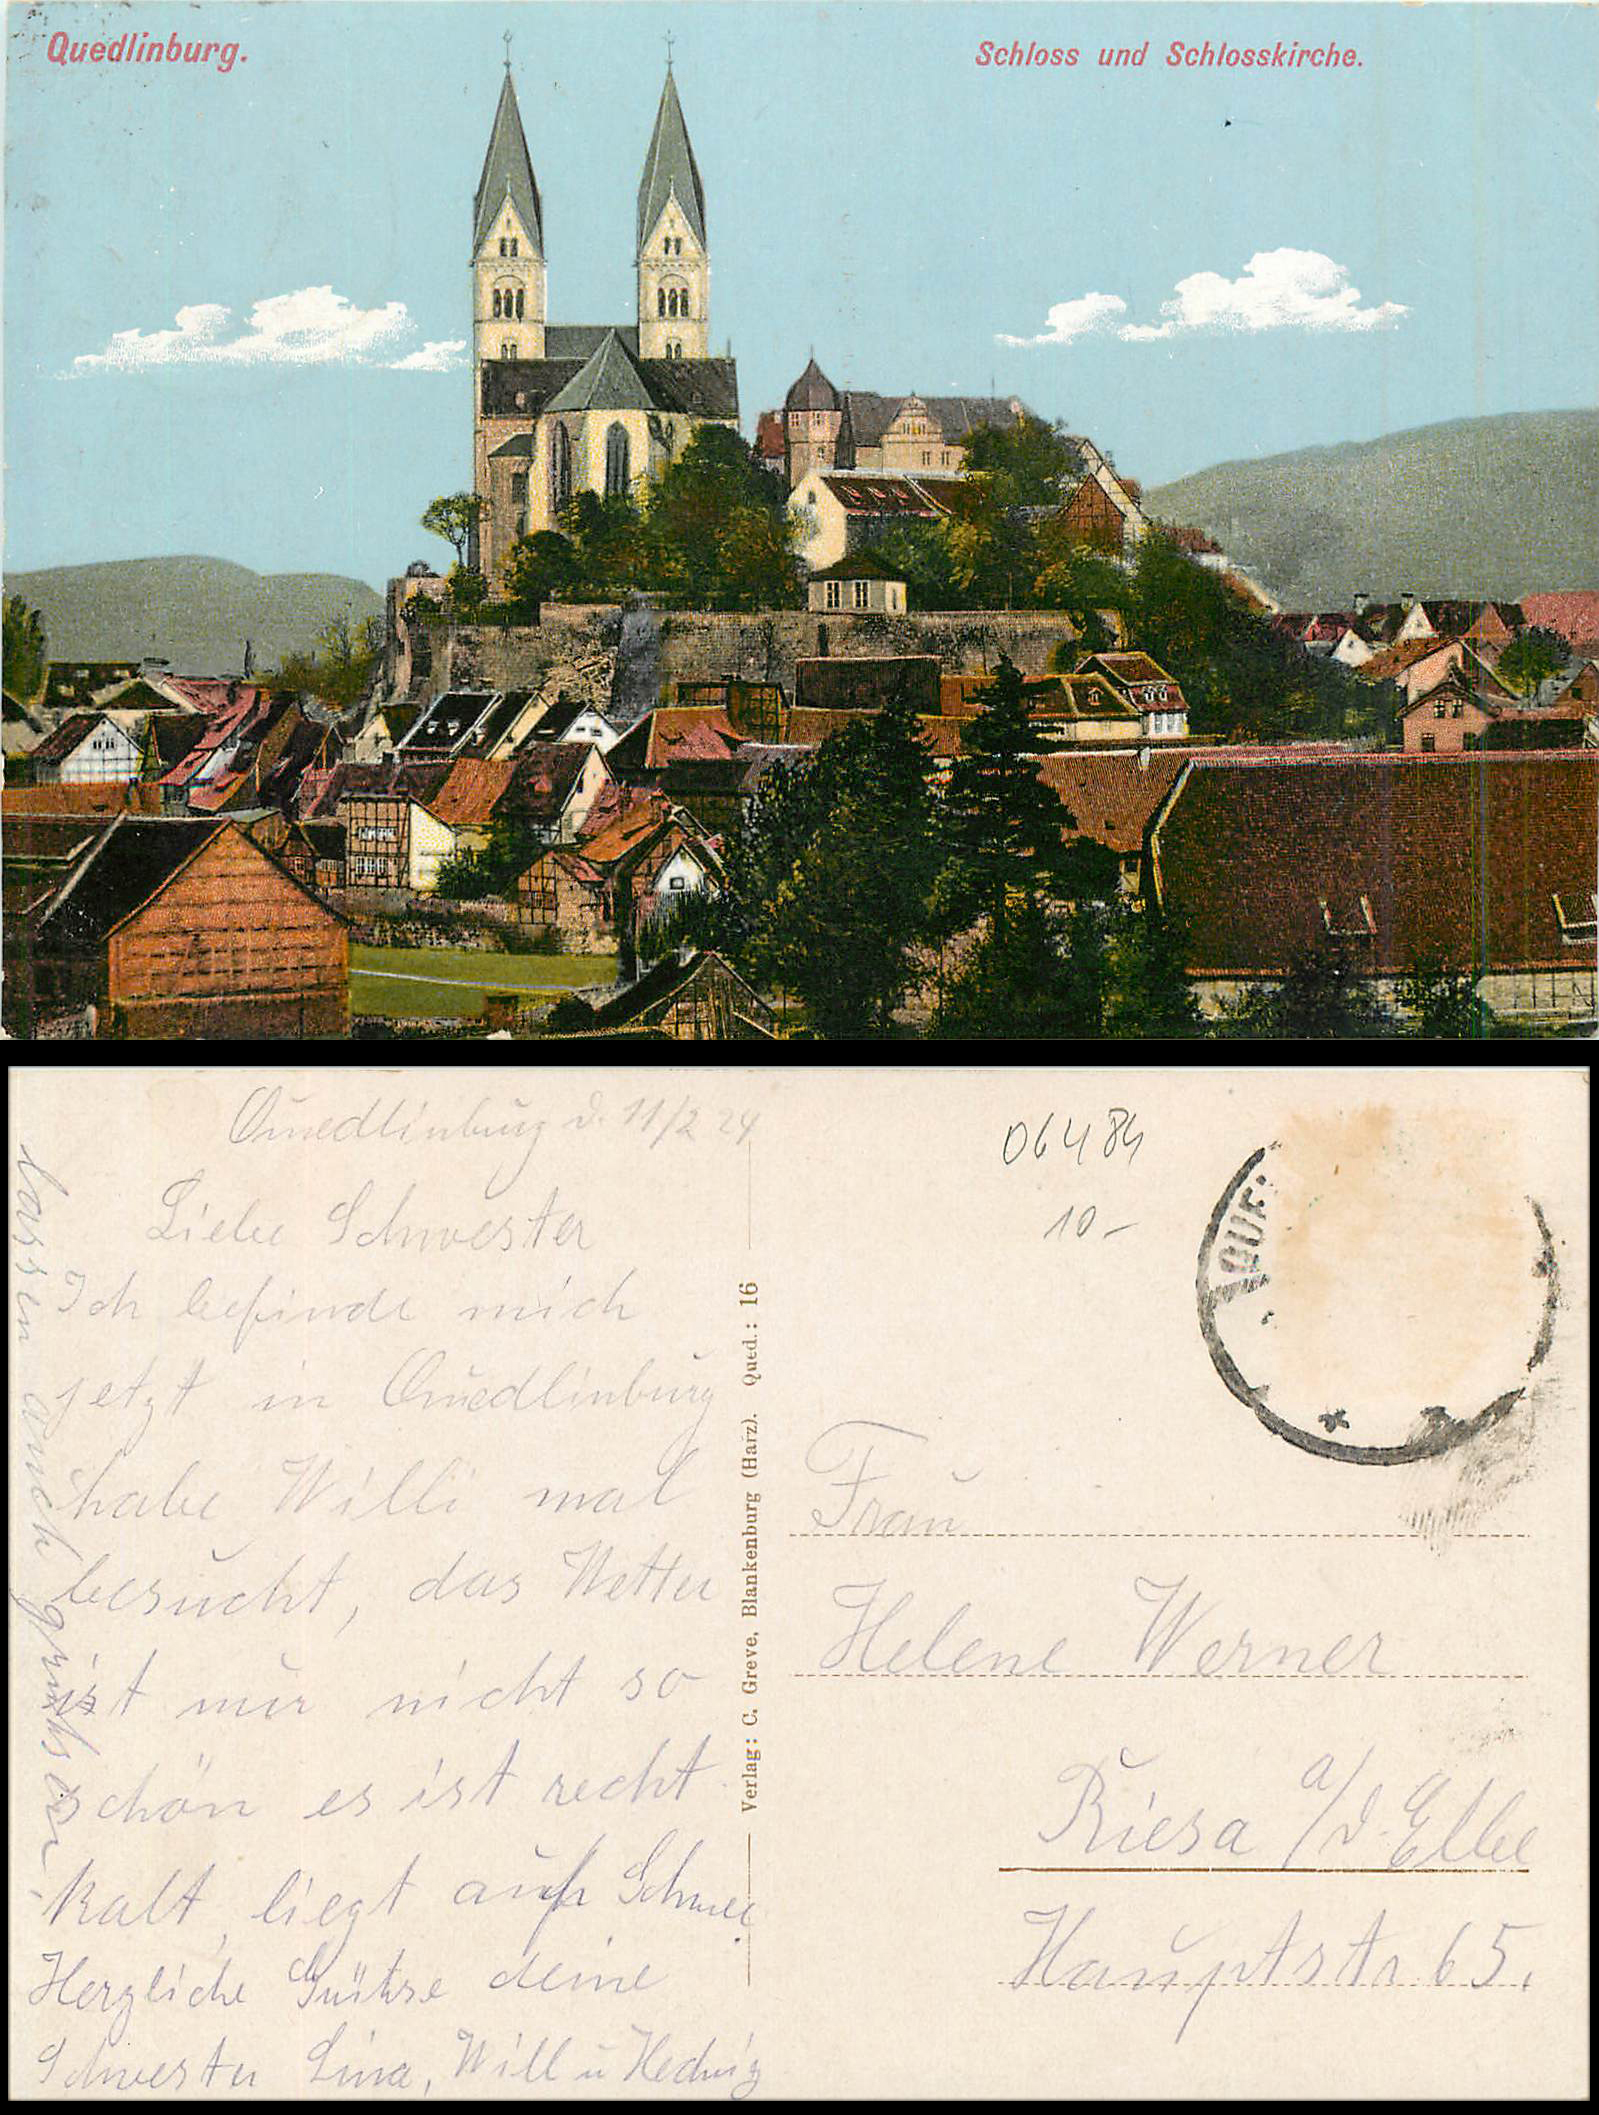 Quedlinburg.
Schloss und Schlosskirche.
Quedlinburg d. 11/2 24
Liebe Schwester
Ich befinde mich
jetzt in Quedlinburg
habe Willi mal
besucht, das Wetter
ist nur nicht so
schön es ist recht
kalt, liegt auch Schnee.
Herzliche Grühse deine
Schwester Lina, Will u Hedwig
lassen auch grühsen.
Verlag: C. Greve, Blankenburg (Harz). Qued.: 16
06484
10-
QUE
Frau
Helene Werner
Riesa a/d. Elbe
Hauptstr. 65.